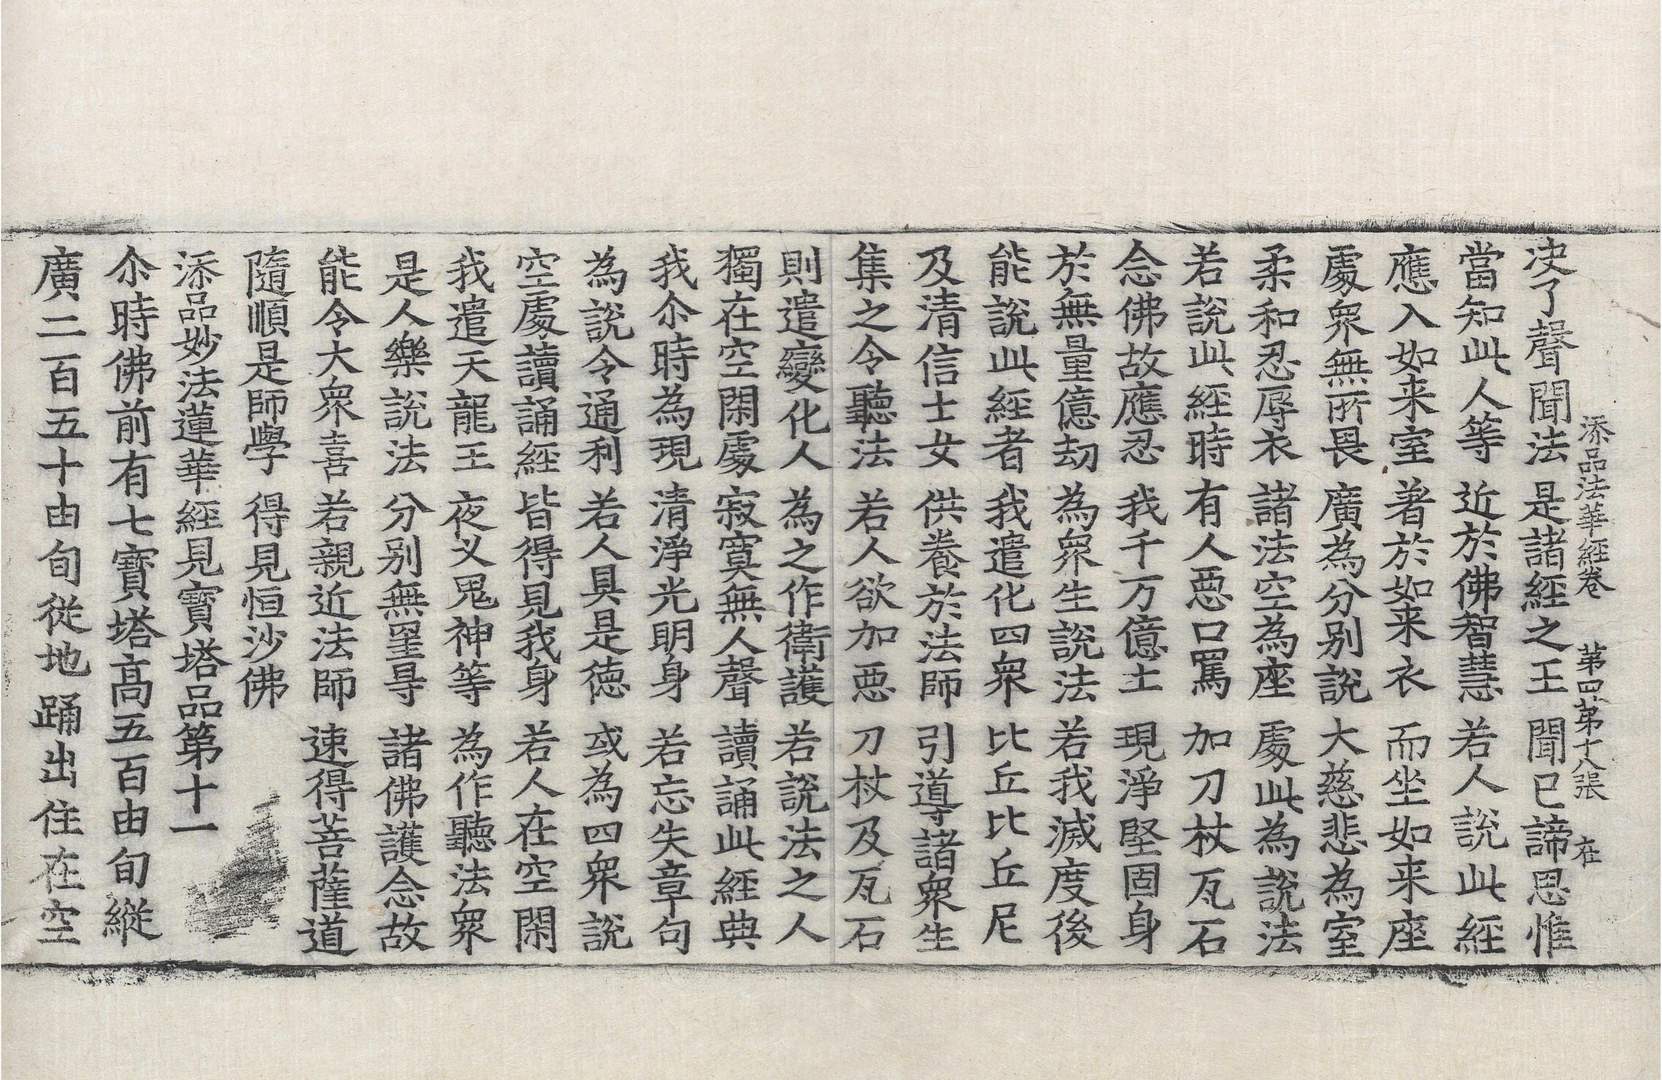 添品法華經卷 第四 第十八張 在
决了聲聞法 是諸經之王 聞已諦思惟
當知此人等 近於佛智慧 若人說此經
應入如来室 著於如来衣 而坐如来座
處衆無所畏 廣為分别說 大慈悲為室
柔和忍辱衣 諸法空為座 處此為說法
若說此經時 有人惡口罵 加刀杖瓦石
念佛故應忍 我千万億土 現淨堅固身
於無量億劫 為衆生說法 若我滅度後
能說此經者 我遣化四衆 比丘比丘尼
及清信士女 供養於法師 引導諸衆生
集之令聽法 若人欲加惡 刀杖及瓦石
則遣變化人 為之作衛護 若說法之人
獨在空閑處 寂寞無人聲 讀誦此經典
我尒時為現 清淨光明身 若忘失章句
為說令通利 若人具是德 或為四衆說
空處讀誦經 皆得見我身 若人在空閑
我遣天龍王 夜叉鬼神等 為作聽法衆
是人樂說法 分别無罣㝵 諸佛護念故
能令大衆喜 若親近法師 速得菩薩道
隨順是師學 得見恒沙佛
添品妙法蓮華經見寶塔品第十一
尒時佛前有七寶塔高五百由旬縱
廣二百五十由旬從地踊出住在空